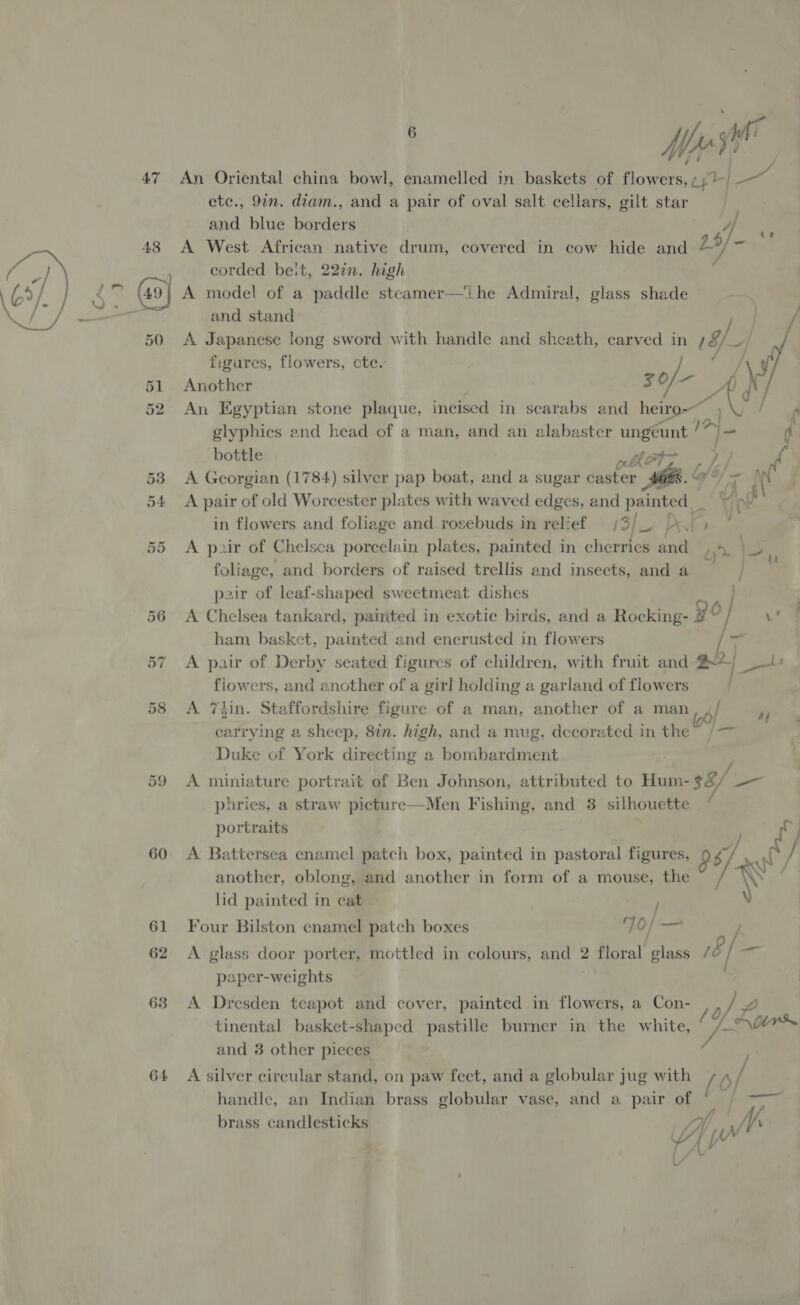 6
47 An Oriental china bowl, enamelled in baskets of flowers,
etc., 9in. diam., and a pair of oval salt cellars, gilt star
and blue borders
48 A West African native drum, covered in cow hide and 25/-
corded belt, 22in. high
65/. 49 A model of a paddle steamer—the Admiral, glass shade
and stand
50 A Japanese long sword with handle and sheath, carved in 18/-
figures, flowers, etc.
51 Another 30/-
52 An Egyptian stone plaque, incised in scarabs and heiro-
glyphics and head of a man, and an alabaster ungeunt
bottle
53 A Georgian (1784) silver pap boat, and a sugar caster
54 A pair of old Worcester plates with waved edges, and painted
in flowers and foliage and rosebuds in relief
55 A pair of Chelsea porcelain plates, painted in cherries and
foliage, and borders of raised trellis and insects, and a
pair of leaf-shaped sweetmeat dishes
56 A Chelsea tankard, painted in exotic birds, and a Rocking-
ham basket, painted and encrusted in flowers
57 A pair of Derby seated figures of children, with fruit and
flowers, and another of a girl holding a garland of flowers
58 A 7½in. Staffordshire figure of a man, another of a man
carrying a sheep, 8in. high, and a mug, decorated in the
Duke of York directing a bombardment
59 A miniature portrait of Ben Johnson, attributed to Hum- 38/-
phries, a straw picture—Men Fishing, and 3 silhouette
portraits
60 A Battersea enamel patch box, painted in pastoral figures,
another, oblong, and another in form of a mouse, the
lid painted in cat
61 Four Bilston enamel patch boxes 70/-
62 A glass door porter, mottled in colours, and 2 floral glass 18/-
paper-weights
63 A Dresden teapot and cover, painted in flowers, a Con-
tinental basket-shaped pastille burner in the white,
and 3 other pieces
64 A silver circular stand, on paw feet, and a globular jug with
handle, an Indian brass globular vase, and a pair of
brass candlesticks